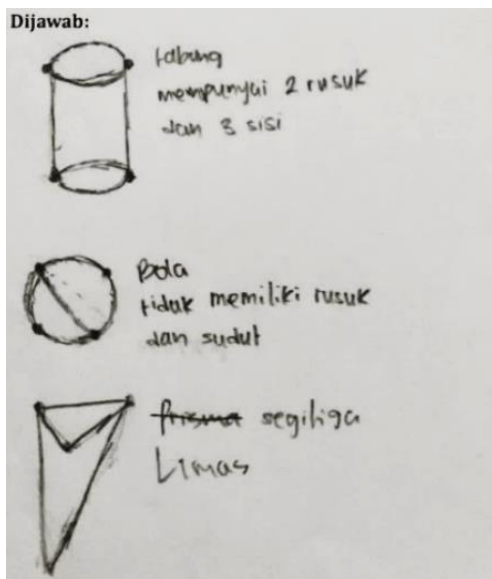 Dijawab:
tabung
mempunyai 2 rusuk
dan 3 sisi
Bola
tidak memiliki rusuk
dan sudut
prisma segitiga
Limas